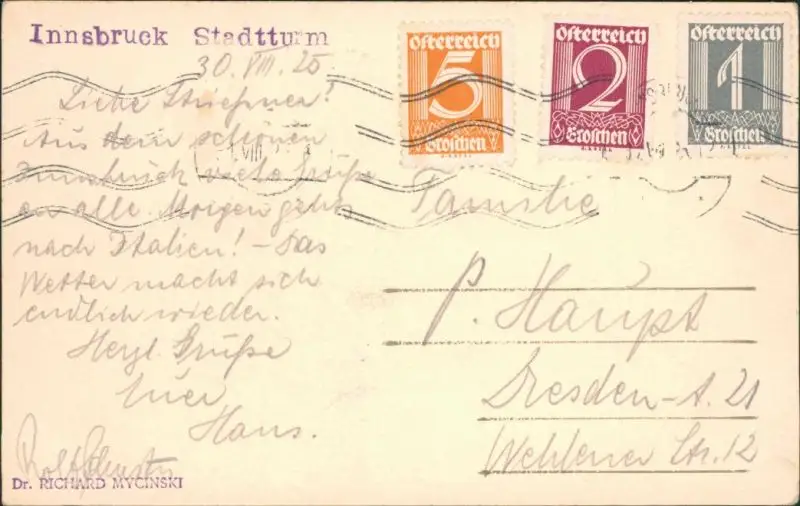 Innsbruck Stadtturm
30. VIII. 25.
Liebe
Aus dem schönen
Innsbruck viele Grüße
an alle. Morgen gehts
nach Italien! - Das
Wetter macht sich
endlich wieder.
Herzl. Grüße
Euer
Hans.
Dr. RICHARD MYCINSKI
Österreich
5
Groschen
Österreich
2
Groschen
Österreich
1
Groschen
Familie
P. Haupt
Dresden-A. 21
Wehlener Str. 12